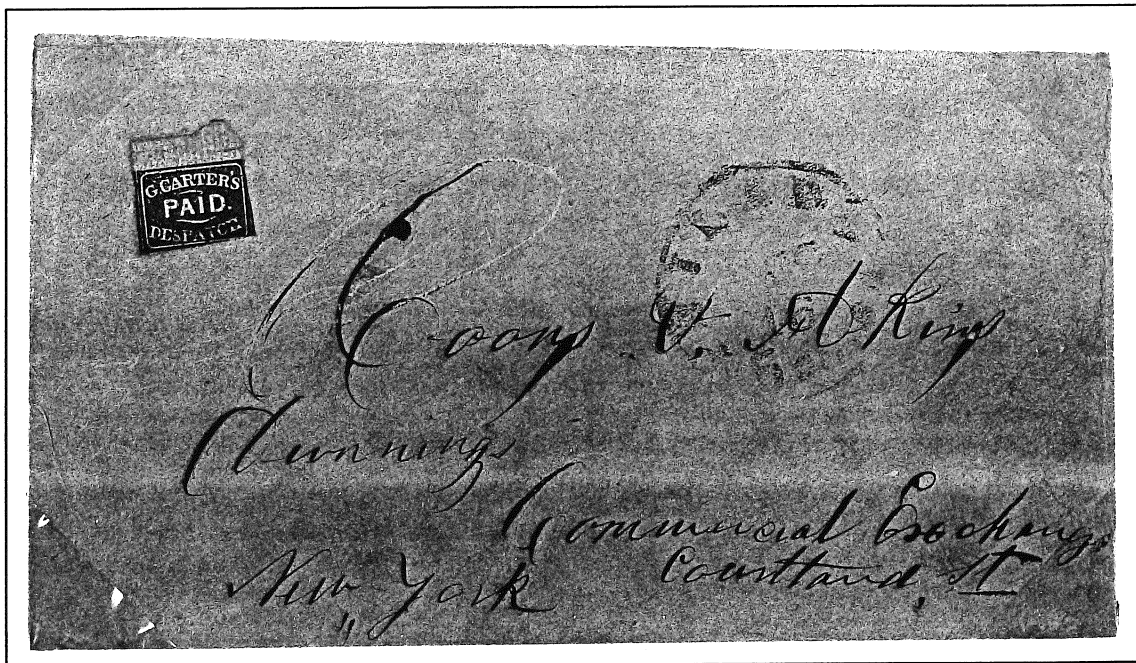 G. CARTER'S
PAID.
DESPATCH
Coons & Akins
Commercial Exchange
Courtland, St
New York